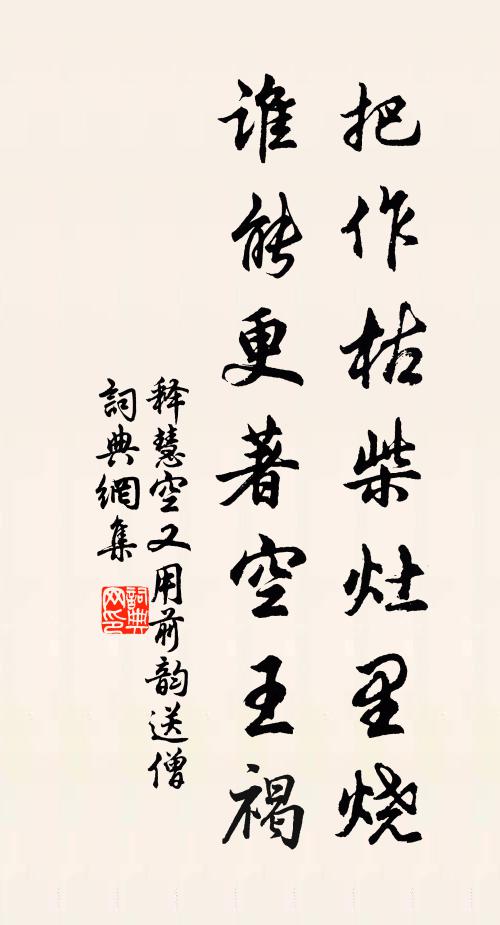 把作枯柴灶里烧
谁能更著空王褐
释慧空又用前韵送僧
詞典網集
詞典
网印